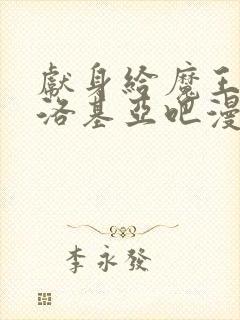 獻身給魔王
洛基亞吧漫
李永發